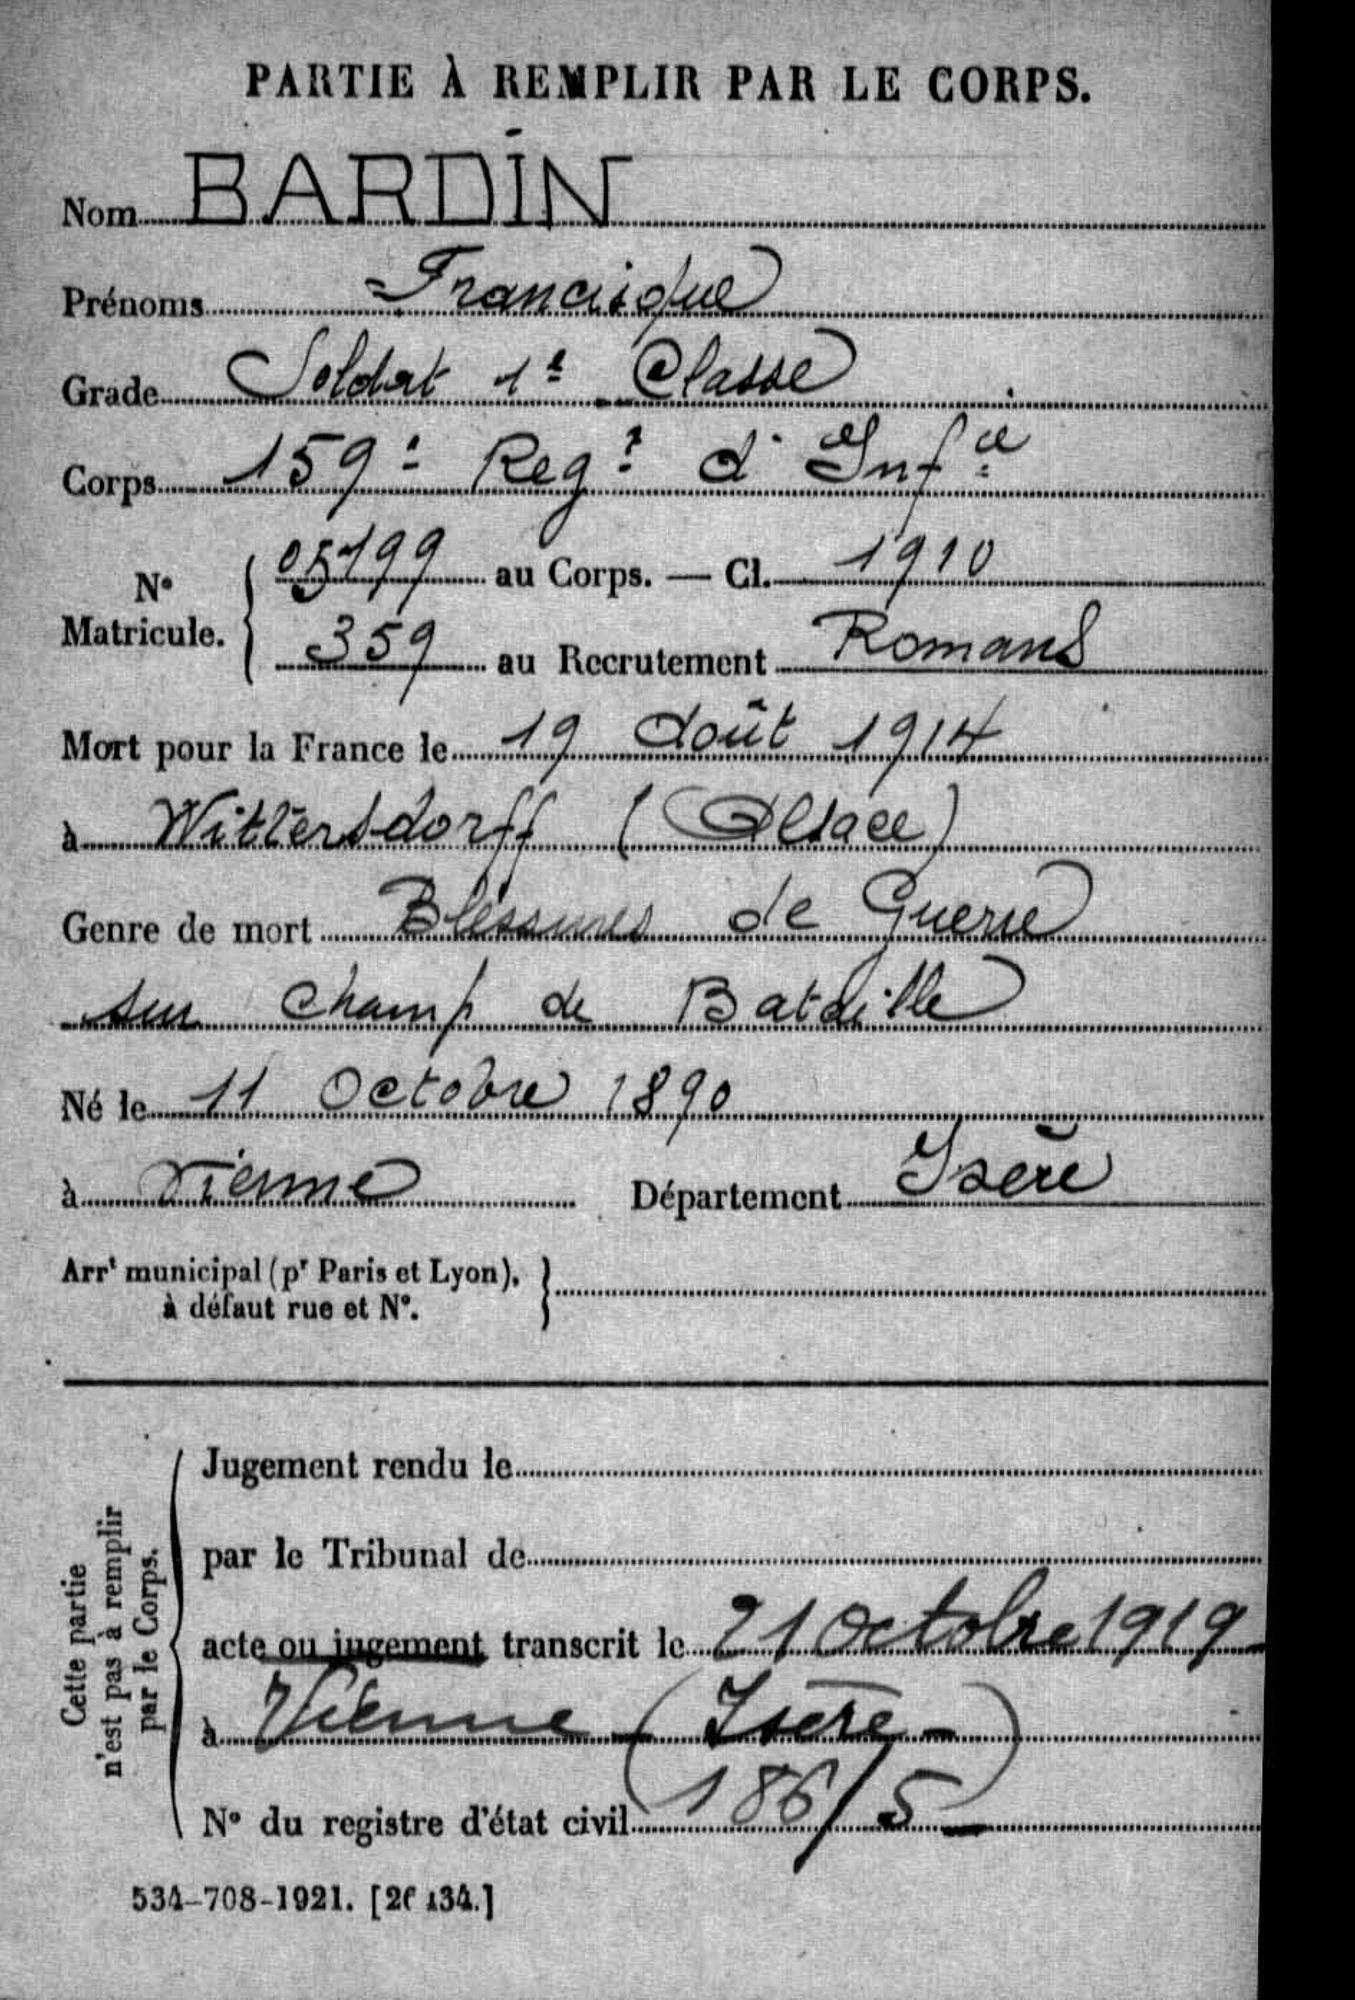 PARTIE À REMPLIR PAR LE CORPS.
Nom BARDIN
Prénoms Francisque
Grade Soldat 1e Classe
Corps 159e Regt d'Infie
No Matricule. { 05199 au Corps. — Cl. 1910
359 au Recrutement Romans
Mort pour la France le 19 Août 1914
à Wittersdorff (Alsace)
Genre de mort Blessures de Guerre
sur champ de Bataille
Né le 11 Octobre 1890
à Vienne Département Isère
Arrt municipal (pr Paris et Lyon), }
à défaut rue et No.
Cette partie
n'est pas à remplir
par le Corps.
Jugement rendu le
par le Tribunal de
acte ou jugement transcrit le 21 Octobre 1919
à Vienne (Isère-)
No du registre d'état civil 186/5
534-708-1921. [26434.]